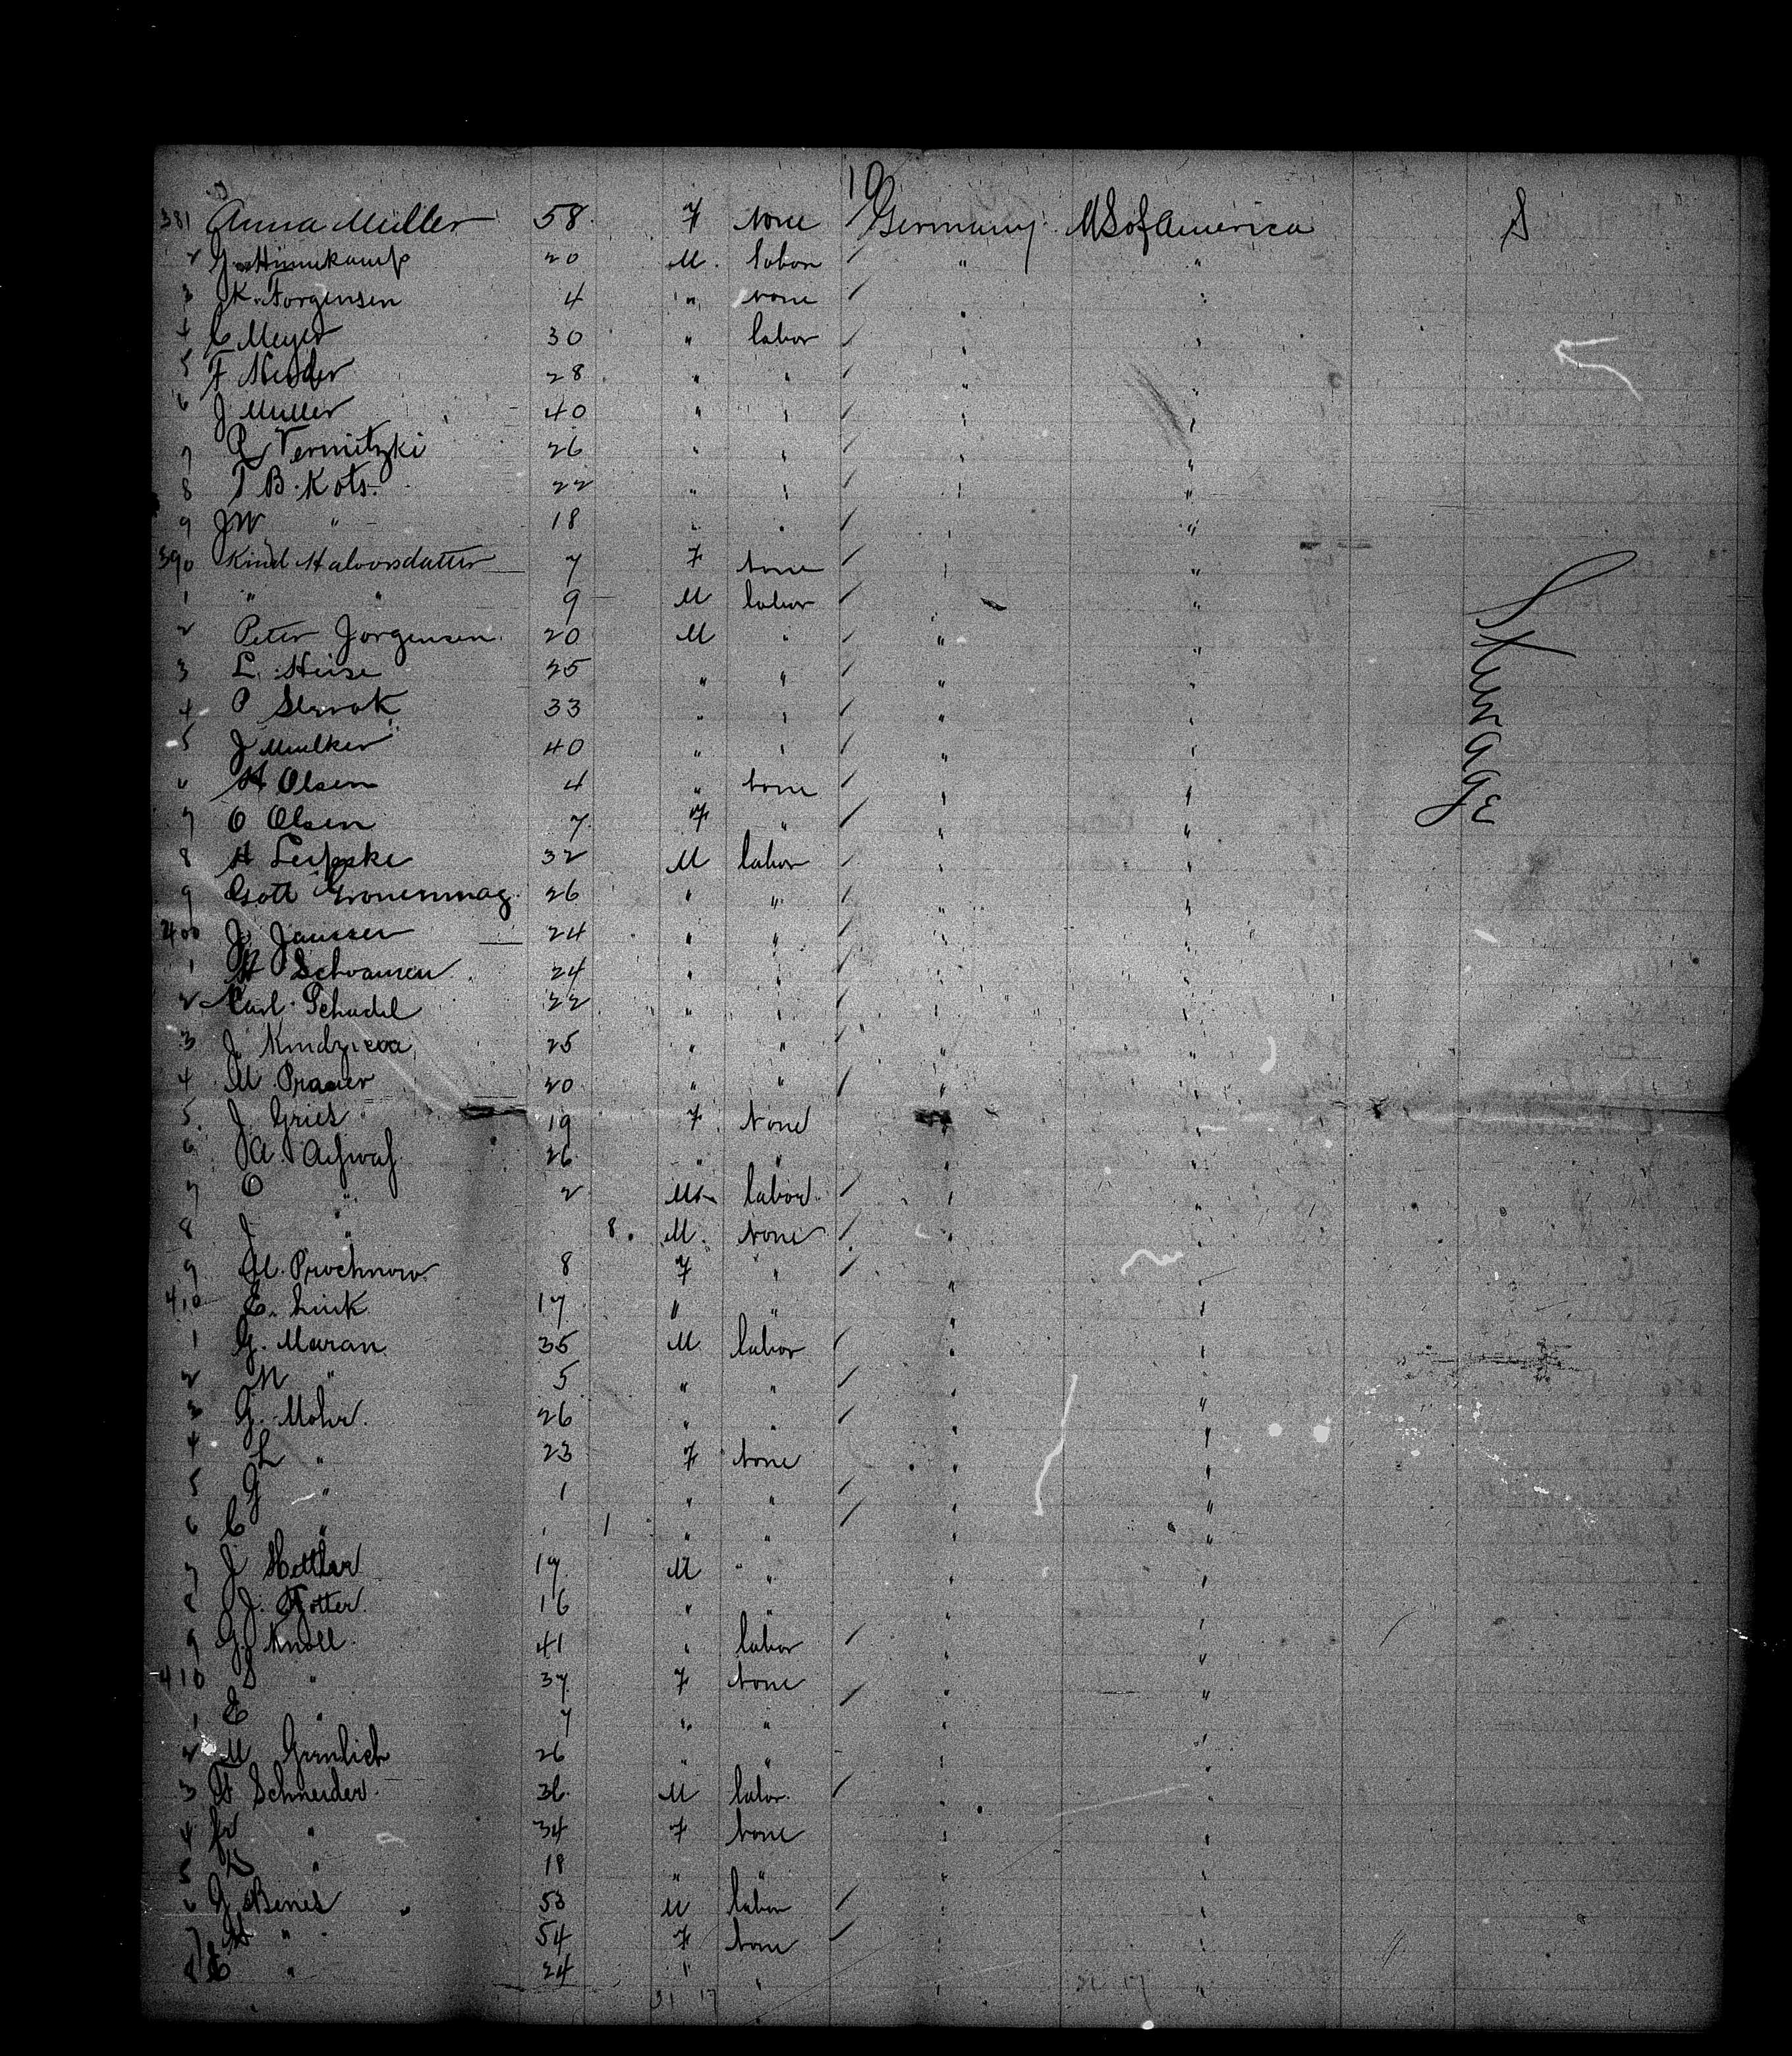 10
381 Anna Müller 58 F None Germany US of America S
2 G Hinnekamp 20 M. labor " "
3 K. Torgensen 4 " None " "
4 C Meyer 30 " labor " "
5 F 28 " " " "
6 J Muller 40 " " " "
7 Vermitzki 26 " " " "
8 T B. Kots. 22 " " " "
9 JW " 18 " " " "
390 Kind Halvorsdatter 7 F None " "
1 " " 9 M labor " "
2 Peter Jorgensen 20 M " " "
3 L. Heise 25 " " " "
4 P 33 " " " "
5 J Mulker 40 " " " "
6 H Olsen 4 " None " "
7 O Olsen 7 F " " "
8 H Leipske 32 M labor " "
9 Gott Gronenmag 26 " " " "
400 J. Janssen 24 " " " "
1 H 24 " " " "
2 Carl Schadel 22 " " " "
3 J. 25 " " " "
4 M Prager 20 " " " "
5 J Gries 19 F None " "
6 A. 26 " " " "
7 O " 2 M labor " "
8 J " 8. M. None " "
9 M. Prochnow 8 F " " "
410 E. Link 17 " " " "
1 G. Maran 35 M labor " "
2 M " 5 " " " "
3 G. Mohr 26 " " " "
4 L " 23 F None " "
5 G " 1 " " " "
6 C " 1 " " " "
7 J Hettler 17 M " " "
8 J. Kotter 16 " " " "
9 G. Knoll 41 " labor " "
410 S " 37 F None " "
1 E " 7 " " " "
2 M Grenlich 26 " " " "
3 F Schneider 36 M labor " "
4 Fr " 34 F None " "
5 " 18 " " " "
6 G Benes " 53 M labor " "
7 A " 54 F None " "
8 C " 24 " " " "
31 17 31 17
Steerage